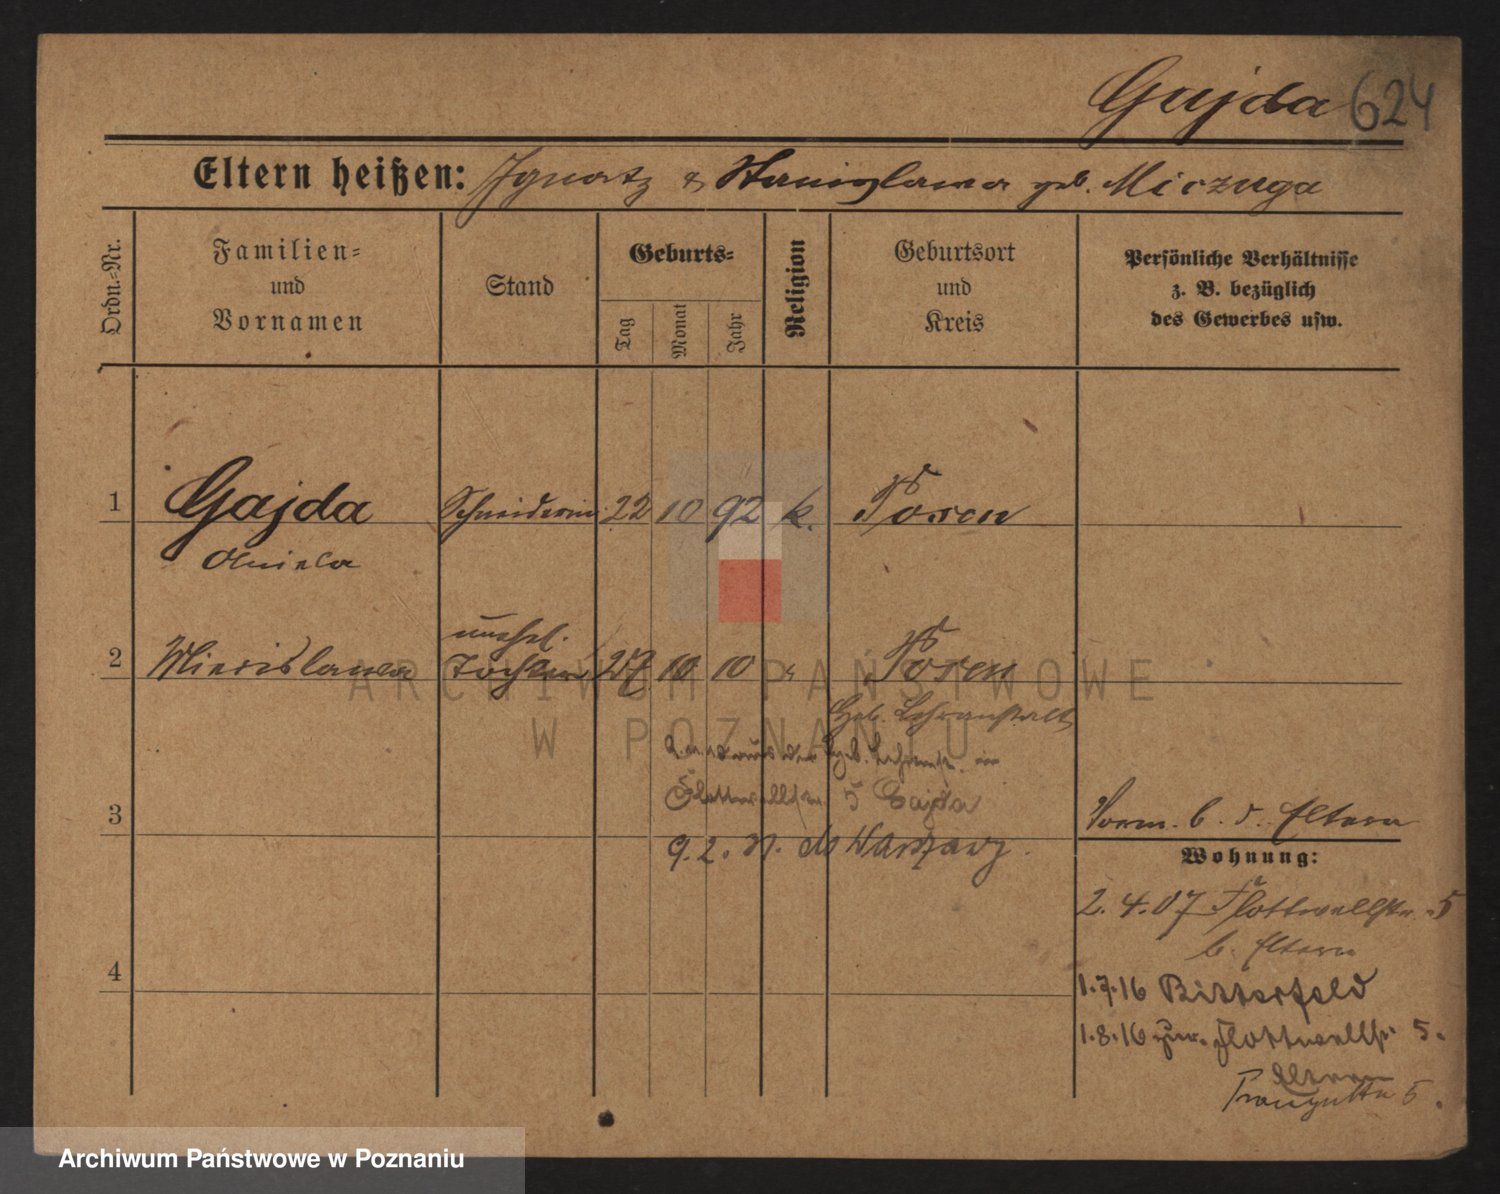 Gajda 624
Eltern heißen: Ignatz & Stanislawa geb. Miczuga
Ordn.-Nr.
Familien-
und
Vornamen
Stand
Geburts-
Tag
Monat
Jahr
Religion
Geburtsort
und
Kreis
Persönliche Verhältnisse
z. B. bezüglich
des Gewerbes usw.
1 Gajda Schneiderin 22 10 92 k. Posen
unehl.
2 Miecislawa Tochter 27 10 10 " Posen
Geb. Lehranstalt
geb. in
Flottwellstr. 5 Gajda
3
9.2.
Vorm. b. d. Eltern
Wohnung:
2.4.07 Flottwellstr. 5
b. Eltern
4
1.7.16 Bitterfeld
1.8.16 zur. Flottwellstr. 5.
Eltern
5.
ARCHIWUM PAŃSTWOWE
W POZNANIU
Archiwum Państwowe w Poznaniu